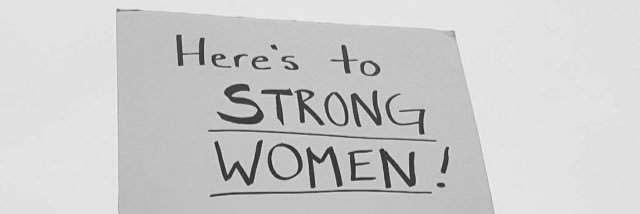 Here's to
STRONG
WOMEN!